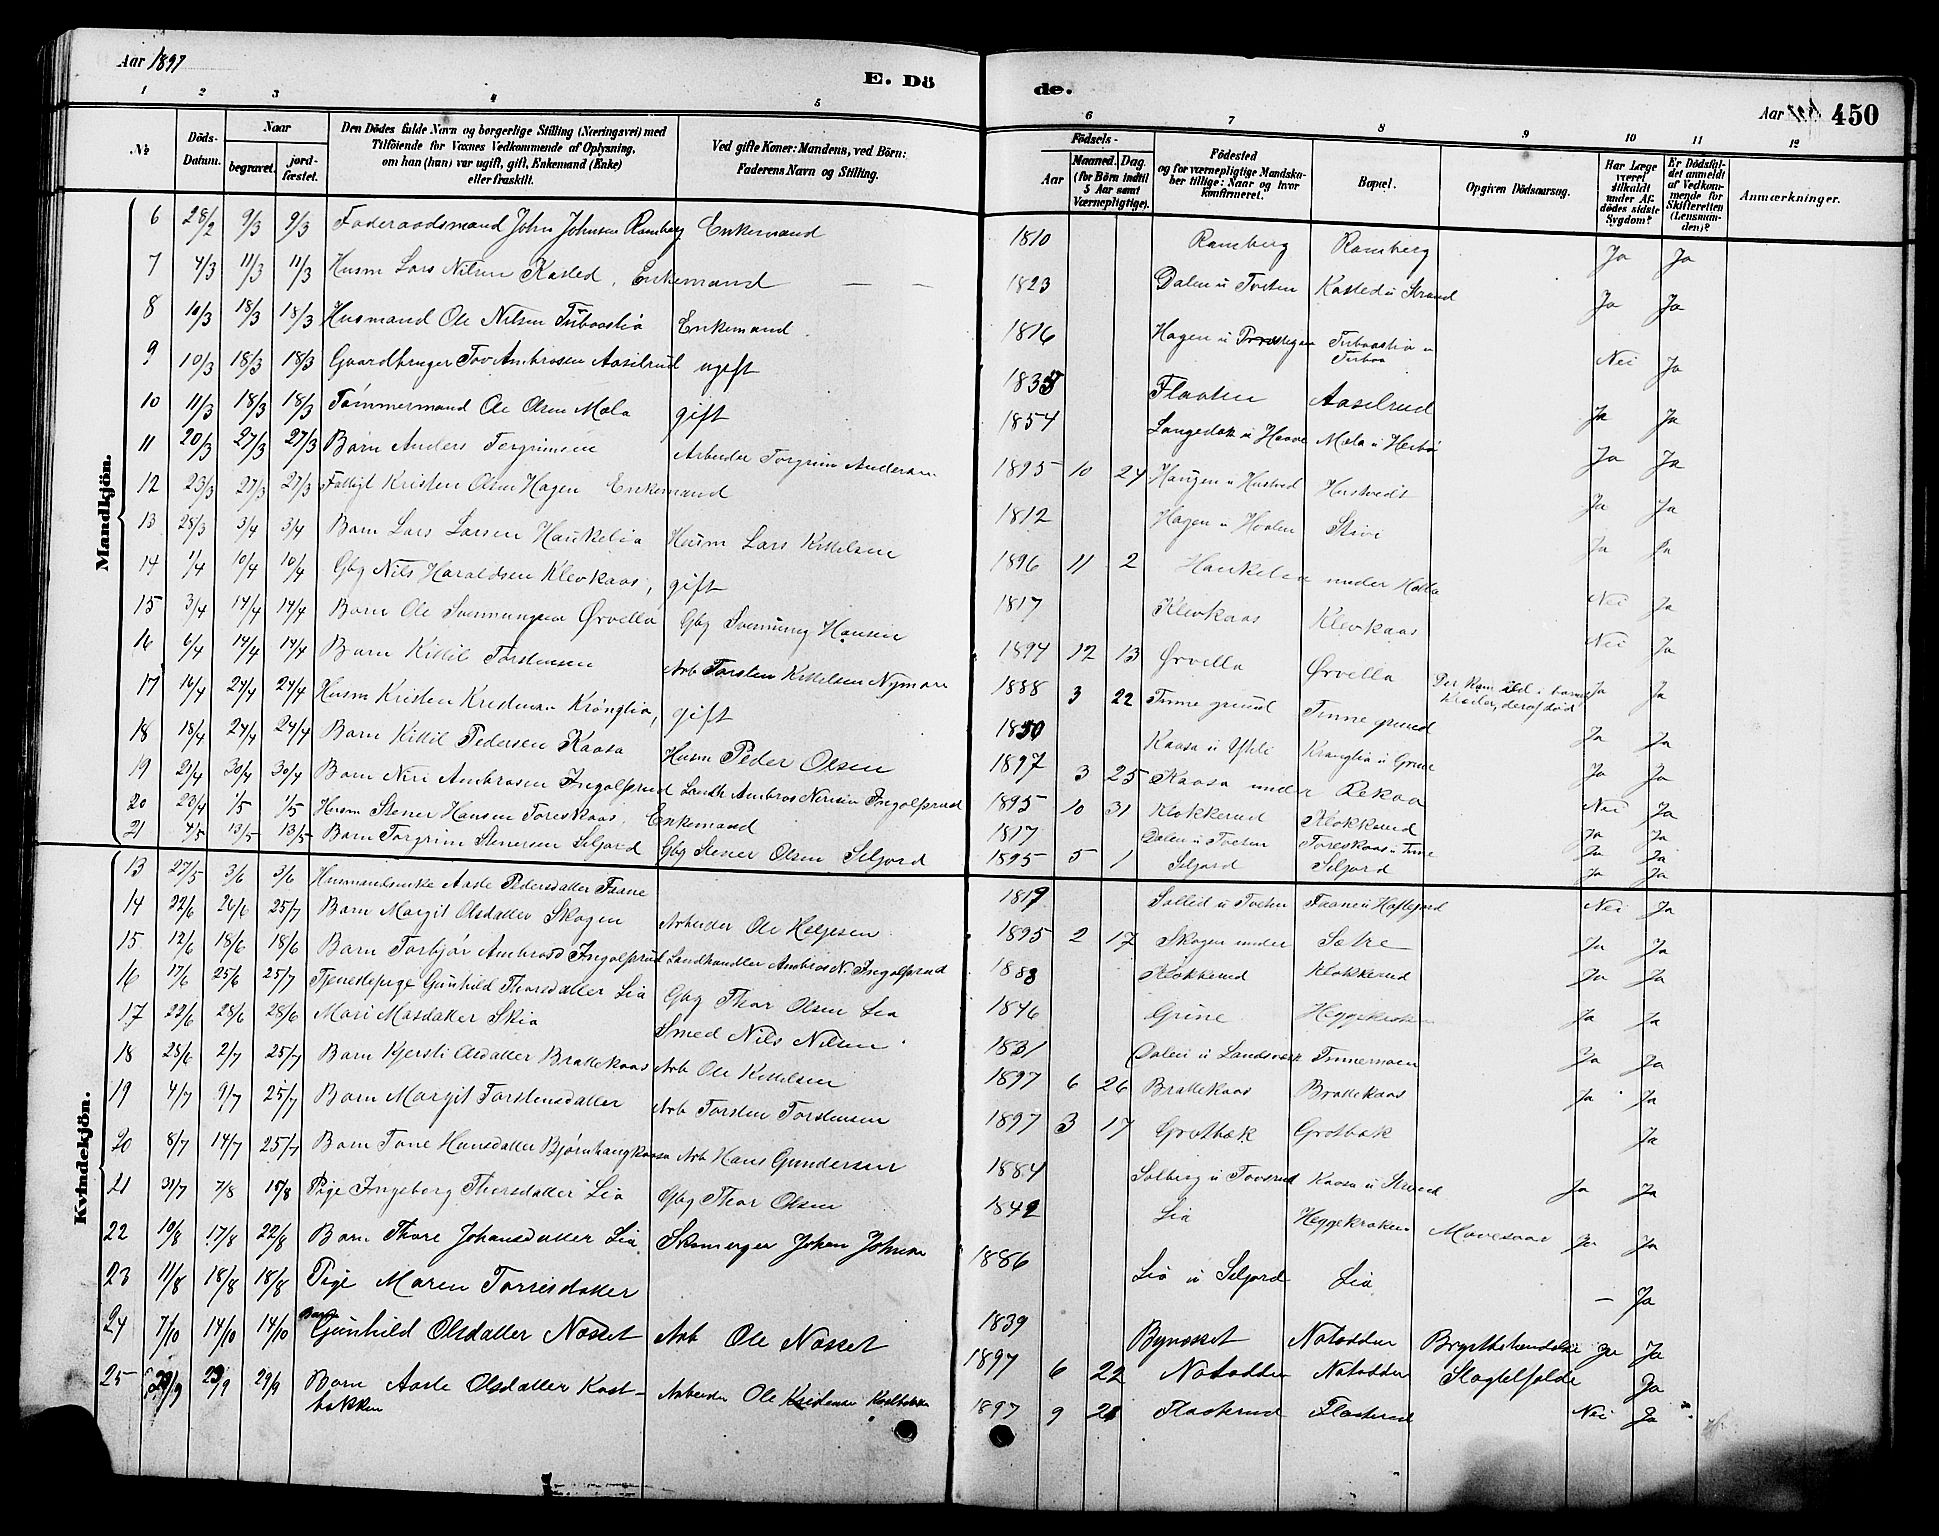 Aar 1897
E. Dö
de.
Aar 450
1 2 3 4 5 6 7 8 9 10 11 12
№
Döds-Datum.
Naar
begravet.
jord-fæstet.
Den Dödes fulde Navn og borgerlige Stilling (Næringsvei) med
Tilföiende for Voxnes Vedkommende af Oplysning,
om han (hun) var ugift, gift, Enkemand (Enke)
eller fraskilt.
Ved gifte Koner: Mandens, ved Börn:
Faderens Navn og Stilling.
Födsels-
Aar
Maaned. Dag.
(for Börn indtil
5 Aar samt
Værnepligtige).
Födested
og for værnepligtige Mandska-
ber tillige: Naar og hvor
konfirmeret.
Bopæl.
Opgiven Dödsaarsag.
Har Læge
været
tilkaldt
under Af-
dödes sidste
Sygdom?
Er Dödsfal-
det anmeldt
af Vedkom-
mende for
Skifteretten
(Lensman-
den)?
Anmærkninger.
Mandkjön.
6 28/2 9/3 9/3 Föderaadsmand John Johnsen Ramberg Enkemand 1810 Ramberg Ramberg Ja Ja
7 4/3 11/3 11/3 Husm Lars Nilsen Kasled, Enkemand — — 1823 Dalen u Tveten Kasled u Strand Ja Ja
8 10/3 18/3 18/3 Husmand Ole Nilsen Enkemand 1816 Hagen u Nei Ja
9 10/3 18/3 18/3 Gaardbruger Tov Ambrosen Aaselrud ugift Flaaten Aaselrud Ja Ja
10 11/3 18/3 18/3 Tømmermand Ole Olsen Mæla gift 1854 Mæla u Ja Ja
11 20/3 27/3 27/3 Barn Anders Torgrimsen Arbeider Torgrim Andersen 1895 10 24 Haugen u Hustved Hustvedt Ja Ja
12 23/3 27/3 27/3 Fattigl Kristen Olsen Hagen Enkemand 1812 Hagen u Ja Ja
13 28/3 3/4 3/4 Barn Lars Larsen Haukelia Husm Lars Kittelsen 1896 11 2 Haukelia under Nei Ja
14 1/4 10/4 10/4 Gbg Nils Haraldsen Klevkaas, gift 1817 Klevkaas Klevkaas Nei Ja
15 3/4 14/4 14/4 Barn Ole Svennungsen Ørvella Gbg Svennung Hansen 1894 12 13 Ørvella Ørvella Ja Ja
16 6/4 14/4 14/4 Barn Kittil Torstensen Arb Torsten Kittelsen Nymoen 1888 3 22 Tinne grund Tinne grund Der kom ild i barnets klæder, deraf død Ja Ja
17 16/4 24/4 24/4 Husm Kristen Kristensen gift Kaasa u Ja Ja
18 18/4 24/4 24/4 Barn Kittil Pedersen Kaasa Husm Peder Olsen 1897 3 25 Kaasa under Rekaa Nei Ja
19 21/4 30/4 30/4 Barn Niri Ambrosen Ingolfsrud Landh Ambros Nirisen Ingolfsrud 1895 10 31 Klokkerud Klokkerud Ja Ja
20 23/4 1/5 1/5 Husm Stener Hansen Toreskaas, Enkemand 1817 Dalen u Tveten Toreskaas u Tinne Ja Ja
21 4/5 13/5 13/5 Barn Torgrim Stenersen Seljord Gbg Stener Olsen Seljord 1895 5 1 Seljord Seljord Ja Ja
Kvindekjön.
13 27/5 3/6 3/6 Husmandsenke Aasle Pedersdatter 1819 Solled u Tveten Nei Ja
14 22/6 26/6 25/7 Barn Margit Olsdatter Skogen Arbeider Ole Helgesen 1895 2 17 Skogen under Sætre Ja Ja
15 12/6 18/6 18/6 Barn Torbjør Ambrosd Ingolfsrud Landhandler Ambros N. Ingolfsrud 1888 Klokkerud Klokkerud Ja Ja
16 17/6 25/6 25/7 Tjenestepige Gunhild Thorsdatter Lia Gbg Thor Olsen Lia 1846 Grine Ja Ja
17 22/6 28/6 28/6 Mari Smed Nils Nilsen 1831 Dalen u Landsverk Tinnemoen Ja Ja
18 28/6 2/7 25/7 Barn Kjersti Olsdatter Brattekaas Arb Ole Kittelsen 1897 6 26 Brattekaas Brattekaas Ja Ja
19 4/7 9/7 25/7 Barn Margit Torstensdatter Arb Torsten Torstensen 1897 3 17 Grotbæk Grotbæk Ja
20 8/7 14/7 25/7 Barn Tone Hansdatter Bjørnhaugkaasa Arb Hans Gundersen 1884 Solberg u Kaasa u Strand Ja Ja
21 31/7 7/8 15/8 Pige Ingeborg Thorsdatter Lia Gbg Thor Olsen 1842 Lia Heggekroken Mavesaar Ja Ja
22 10/8 17/8 22/8 Barn Thore Johansdatter Lia, Skomager Johan Johnsen 1886 Lia u Seljord Lia — Ja
23 11/8 18/8 18/8 Pige Maren Torrisdatter 1839 Bynesset Notodden Ja Ja
24 7/10 14/10 14/10 Barn Gunhild Olsdatter Næsset Arb Ole Næsset 1897 6 22 Notodden Notodden Ja
25 29/9 29/9 Barn Aasle Olsdatter Kast-
bakken Arbeider Ole 1897 9 21 Flaaterud Flaaterud Nei Ja